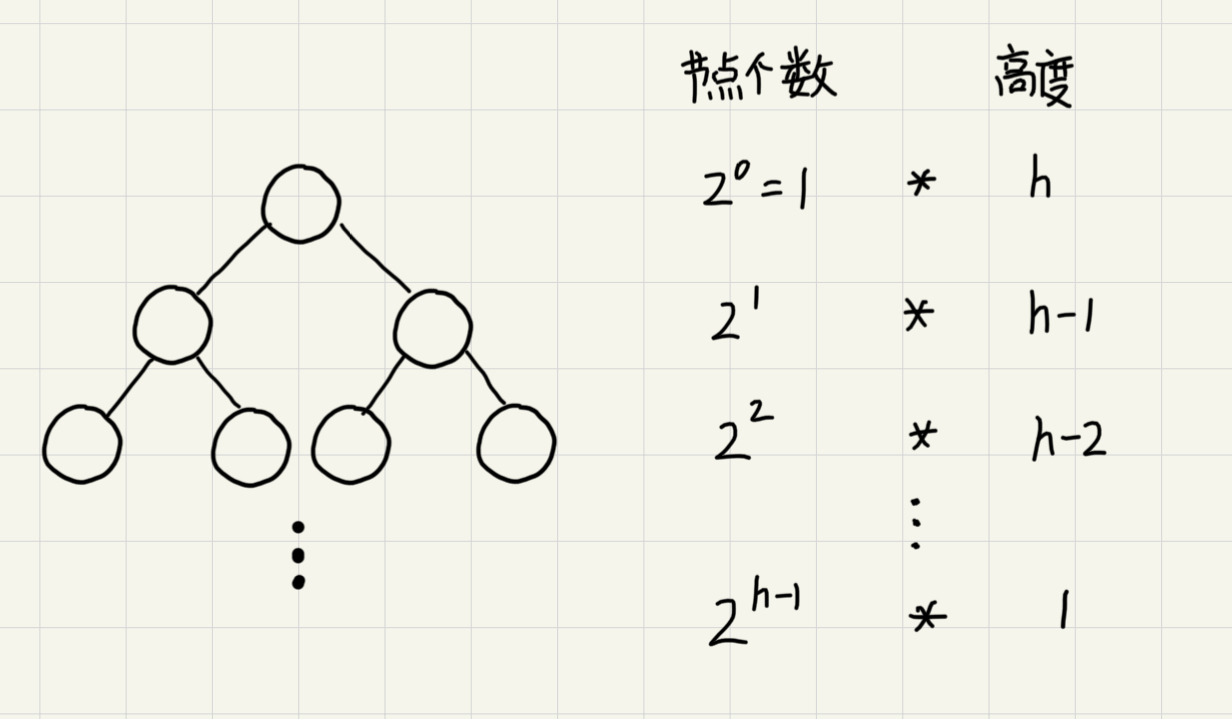 节点个数 高度
2⁰ = 1 * h
2¹ * h-1
2² * h-2
⋮
2ʰ⁻¹ * 1